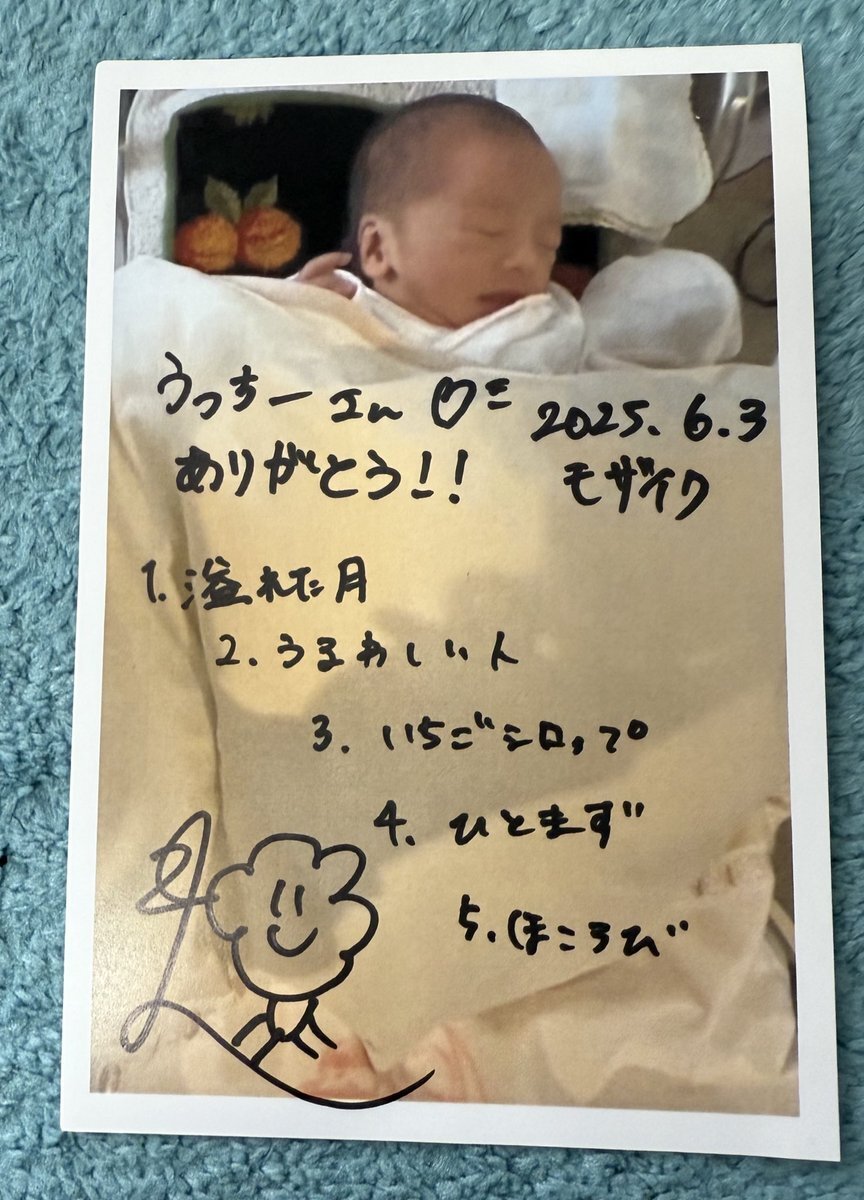 うっちーさん♡
ありがとう!!
2025.6.3
モザイク
1. 溢れた月
2. うるわしい人
3. いちごシロップ
4. ひとまず
5. ほころび